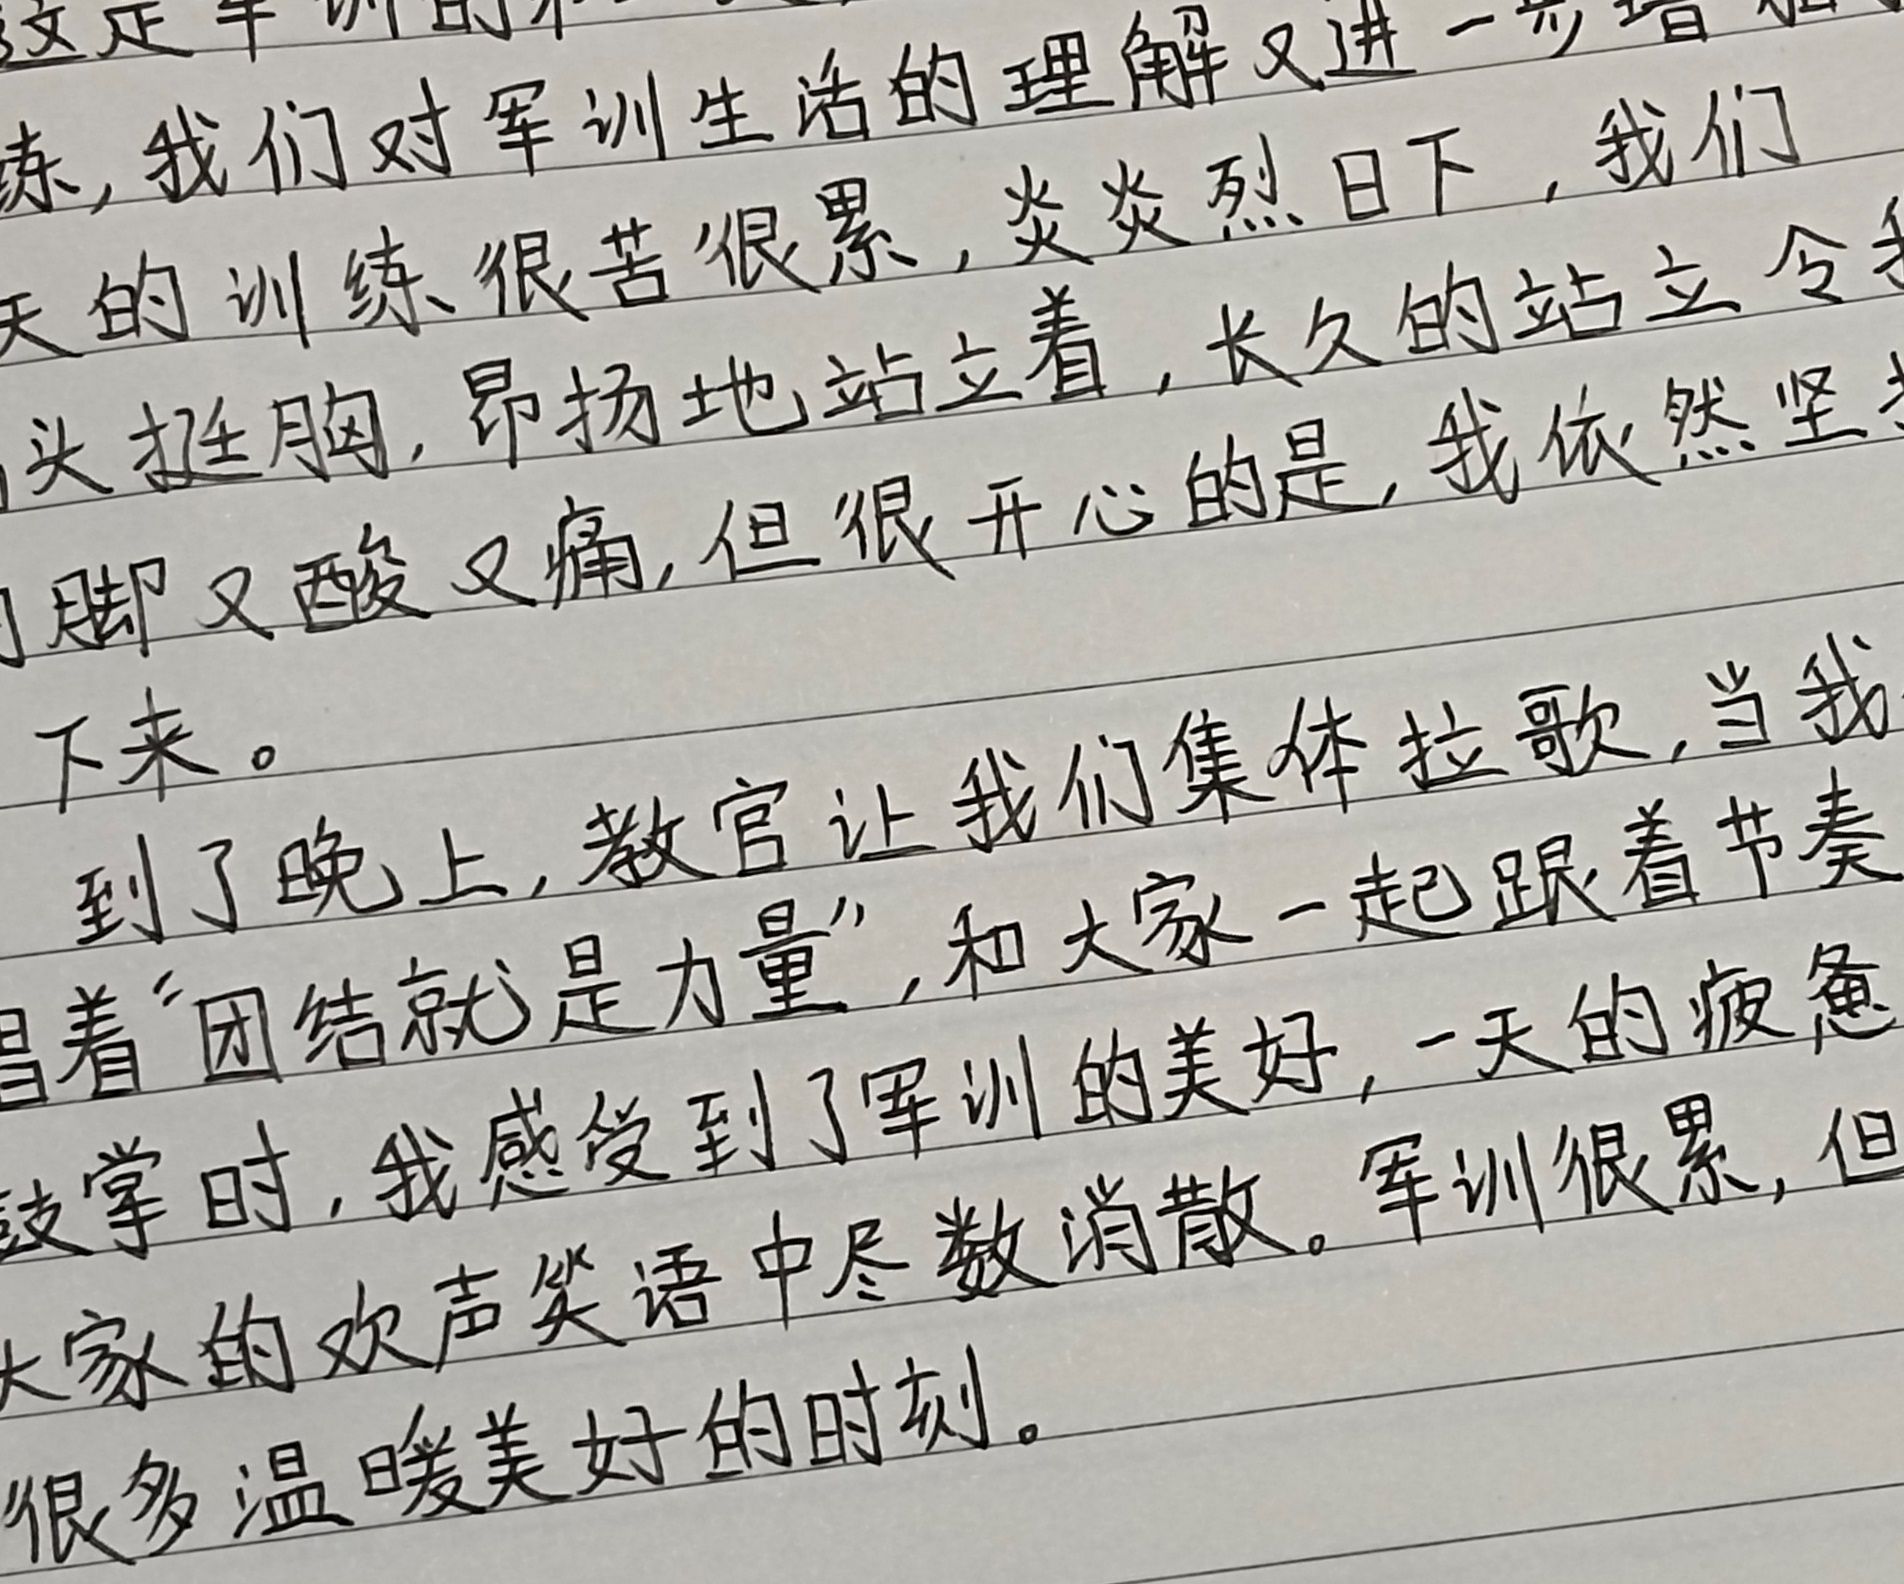 这是军训的
练,我们对军训生活的理解又进一步增加
天的训练很苦很累,炎炎烈日下,我们
头挺胸,昂扬地站立着,长久的站立令我
的脚又酸又痛,但很开心的是,我依然坚
下来。
到了晚上,教官让我们集体拉歌,当我
唱着“团结就是力量”,和大家一起跟着节奏
鼓掌时,我感受到了军训的美好,一天的疲惫
大家的欢声笑语中尽数消散。军训很累,但
很多温暖美好的时刻。